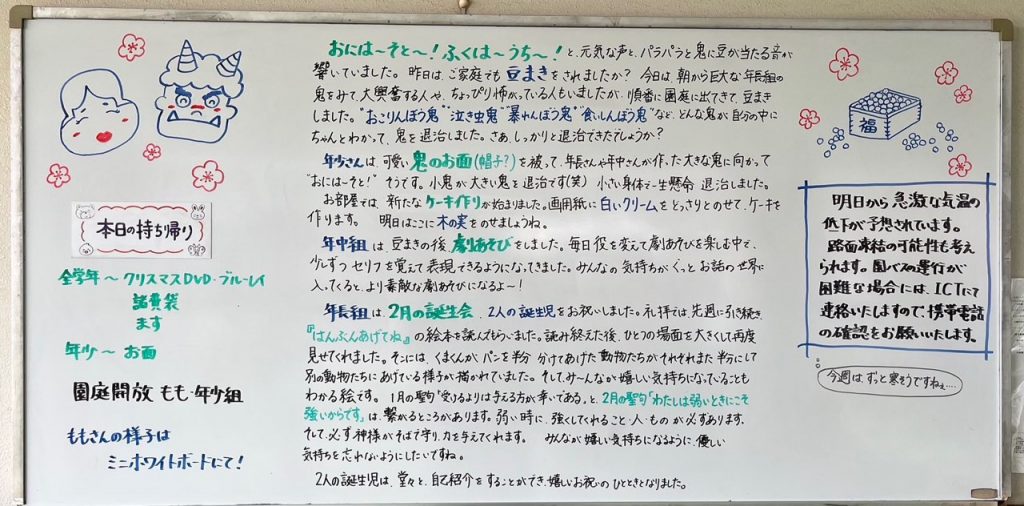 本日の持ち帰り
全学年〜クリスマスDVD・ブルーレイ
諸費袋
ます
年少〜お面
園庭開放 もも・年少組
ももさんの様子は
ミニホワイトボードにて!
おには〜そと〜!ふくは〜うち〜!と、元気な声と、パラパラと鬼に豆が当たる音が
響いていました。昨日は、ご家庭でも豆まきをされましたか?今日は、朝から巨大な年長組の
鬼をみて、大興奮する人や、ちょっぴり怖がっている人もいましたが、順番に園庭に出てきて、豆まき
しました。"おこりんぼう鬼""泣き虫鬼""暴れんぼう鬼""食いしんぼう鬼"など、どんな鬼が自分の中に
ちゃんとわかって、鬼を退治しました。さあ、しっかりと退治できたでしょうか?
年少さんは、可愛い鬼のお面(帽子?)を被って、年長さんや年中さんが作った大きな鬼に向かって
"おには〜そと!"そうです。小鬼が大きい鬼を退治です(笑)小さい身体で一生懸命退治しました。
お部屋では、新たなケーキ作りが始まりました。画用紙に白いクリームをどっさりとのせて、ケーキを
作ります。 明日はここに木の実をのせましょうね。
年中組は、豆まきの後、劇あそびをしました。毎日役を変えて劇あそびを楽しむ中で、
少しずつセリフを覚えて表現できるようになってきました。みんなの気持ちがぐっとお話の世界に
入ってくると、より素敵な劇あそびになるよ〜!
年長組は、2月の誕生会、2人の誕生児をお祝いしました。礼拝では、先週に引き続き
『はんぶんあげてね』の絵本を読んでもらいました。読み終えた後、ひとつの場面を大きくして再度
見せてくれました。そこには、くまくんが、パンを半分 分けてあげた動物たちがそれぞれまた半分にして
別の動物たちにあげている様子が描かれていました。そして、み〜んなが嬉しい気持ちになっていることも
わかる絵です。1月の聖句「受けるよりは与える方が幸いである」と、2月の聖句「わたしは弱いときにこそ
強いからです」は、繋がるところがあります。弱い時に、強くしてくれること・人・ものが必ずあります。
そして、必ず神様がそばで守り、力を与えてくれます。 みんなが嬉しい気持ちになるように、優しい
気持ちを忘れないようにしたいですね。
2人の誕生児は、堂々と、自己紹介をすることができ、嬉しいお祝いのひとときとなりました。
福
明日から急激な気温の
低下が予想されています。
路面凍結の可能性も考え
られます。園バスの運行が
困難な場合には、ICTにて
連絡いたしますので、携帯電話
の確認をお願いいたします。
今週は、ずっと寒そうですねぇ....